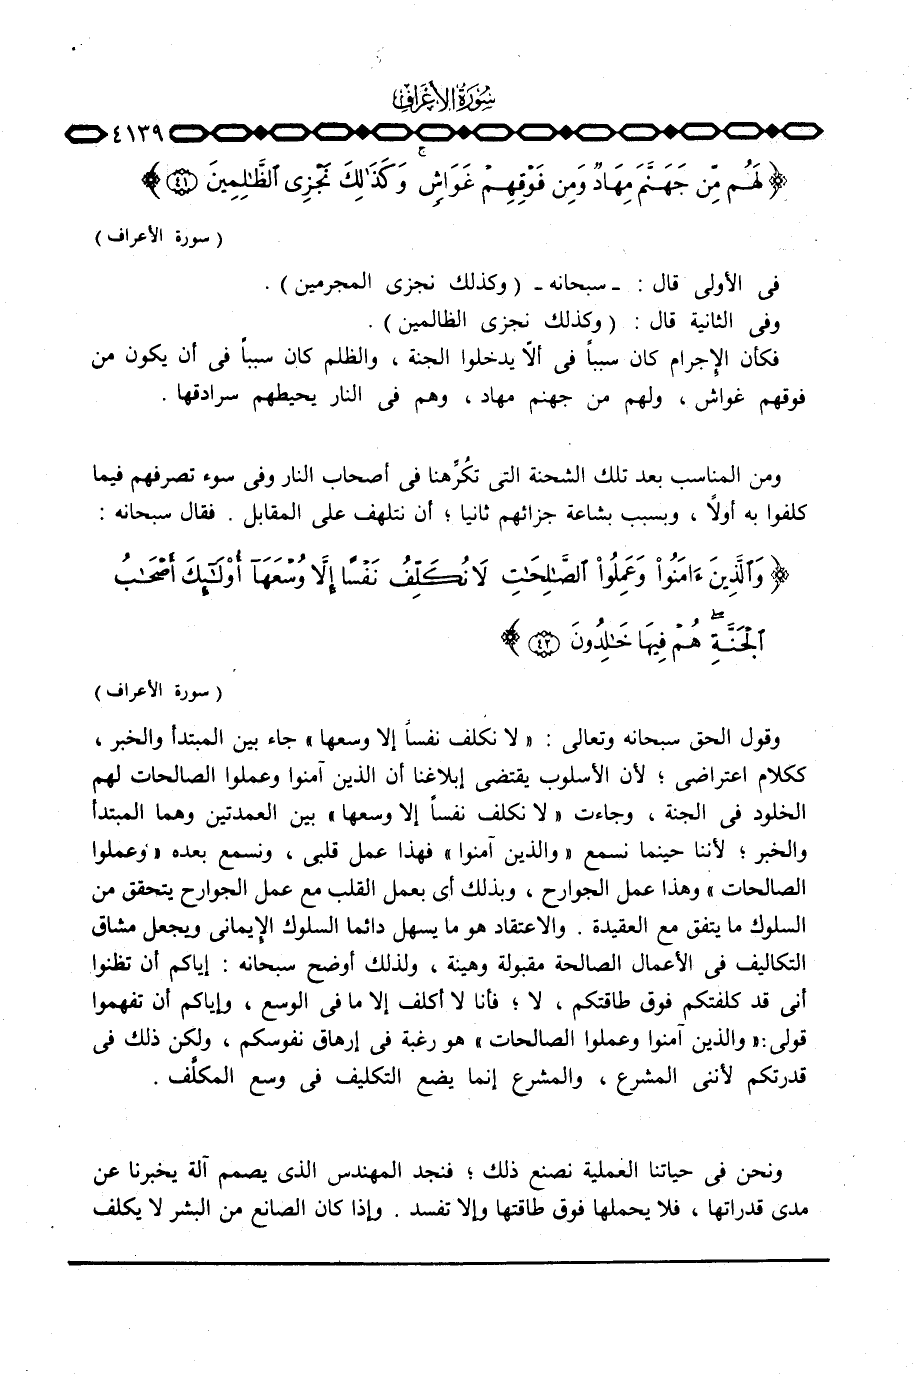 سُورَةُ الأَعْرَافِ
٤١٣٩
﴿ لَهُم مِّن جَهَنَّمَ مِهَادٌ وَمِن فَوْقِهِمْ غَوَاشٍ ۚ وَكَذَٰلِكَ نَجْزِى ٱلظَّٰلِمِينَ ٤١ ﴾
( سورة الأعراف )
فى الأولى قال : ـ سبحانه ـ ( وكذلك نجزى المجرمين ) .
وفى الثانية قال : ( وكذلك نجزى الظالمين ) .
فكأن الإجرام كان سبباً فى ألاّ يدخلوا الجنة ، والظلم كان سبباً فى أن يكون من
فوقهم غواش ، ولهم من جهنم مهاد ، وهم فى النار يحيطهم سرادقها .
ومن المناسب بعد تلك الشحنة التى تكُرِّهنا فى أصحاب النار وفى سوء تصرفهم فيما
كلفوا به أولاً ، وبسبب بشاعة جزائهم ثانيا ؛ أن نتلهف على المقابل . فقال سبحانه :
﴿ وَٱلَّذِينَ ءَامَنُوا۟ وَعَمِلُوا۟ ٱلصَّٰلِحَٰتِ لَا نُكَلِّفُ نَفْسًا إِلَّا وُسْعَهَآ أُو۟لَٰٓئِكَ أَصْحَٰبُ
ٱلْجَنَّةِ ۖ هُمْ فِيهَا خَٰلِدُونَ ٤٢ ﴾
( سورة الأعراف )
وقول الحق سبحانه وتعالى : « لا نكلف نفساً إلا وسعها » جاء بين المبتدأ والخبر ،
ككلام اعتراضى ؛ لأن الأسلوب يقتضى إبلاغنا أن الذين آمنوا وعملوا الصالحات لهم
الخلود فى الجنة ، وجاءت « لا نكلف نفساً إلا وسعها » بين العمدتين وهما المبتدأ
والخبر ؛ لأننا حينما نسمع « والذين آمنوا » فهذا عمل قلبى ، ونسمع بعده « وعملوا
الصالحات » وهذا عمل الجوارح ، وبذلك أى بعمل القلب مع عمل الجوارح يتحقق من
السلوك ما يتفق مع العقيدة . والاعتقاد هو ما يسهل دائما السلوك الإيمانى ويجعل مشاق
التكاليف فى الأعمال الصالحة مقبولة وهينة ، ولذلك أوضح سبحانه : إياكم أن تظنوا
أنى قد كلفتكم فوق طاقتكم ، لا ؛ فأنا لا أكلف إلا ما فى الوسع ، وإياكم أن تفهموا
قولى :« والذين آمنوا وعملوا الصالحات » هو رغبة فى إرهاق نفوسكم ، ولكن ذلك فى
قدرتكم لأننى المشرع ، والمشرع إنما يضع التكليف فى وسع المكلَّف .
ونحن فى حياتنا العملية نصنع ذلك ؛ فنجد المهندس الذى يصمم آلة يخبرنا عن
مدى قدراتها ، فلا يحملها فوق طاقتها وإلا تفسد . وإذا كان الصانع من البشر لا يكلف